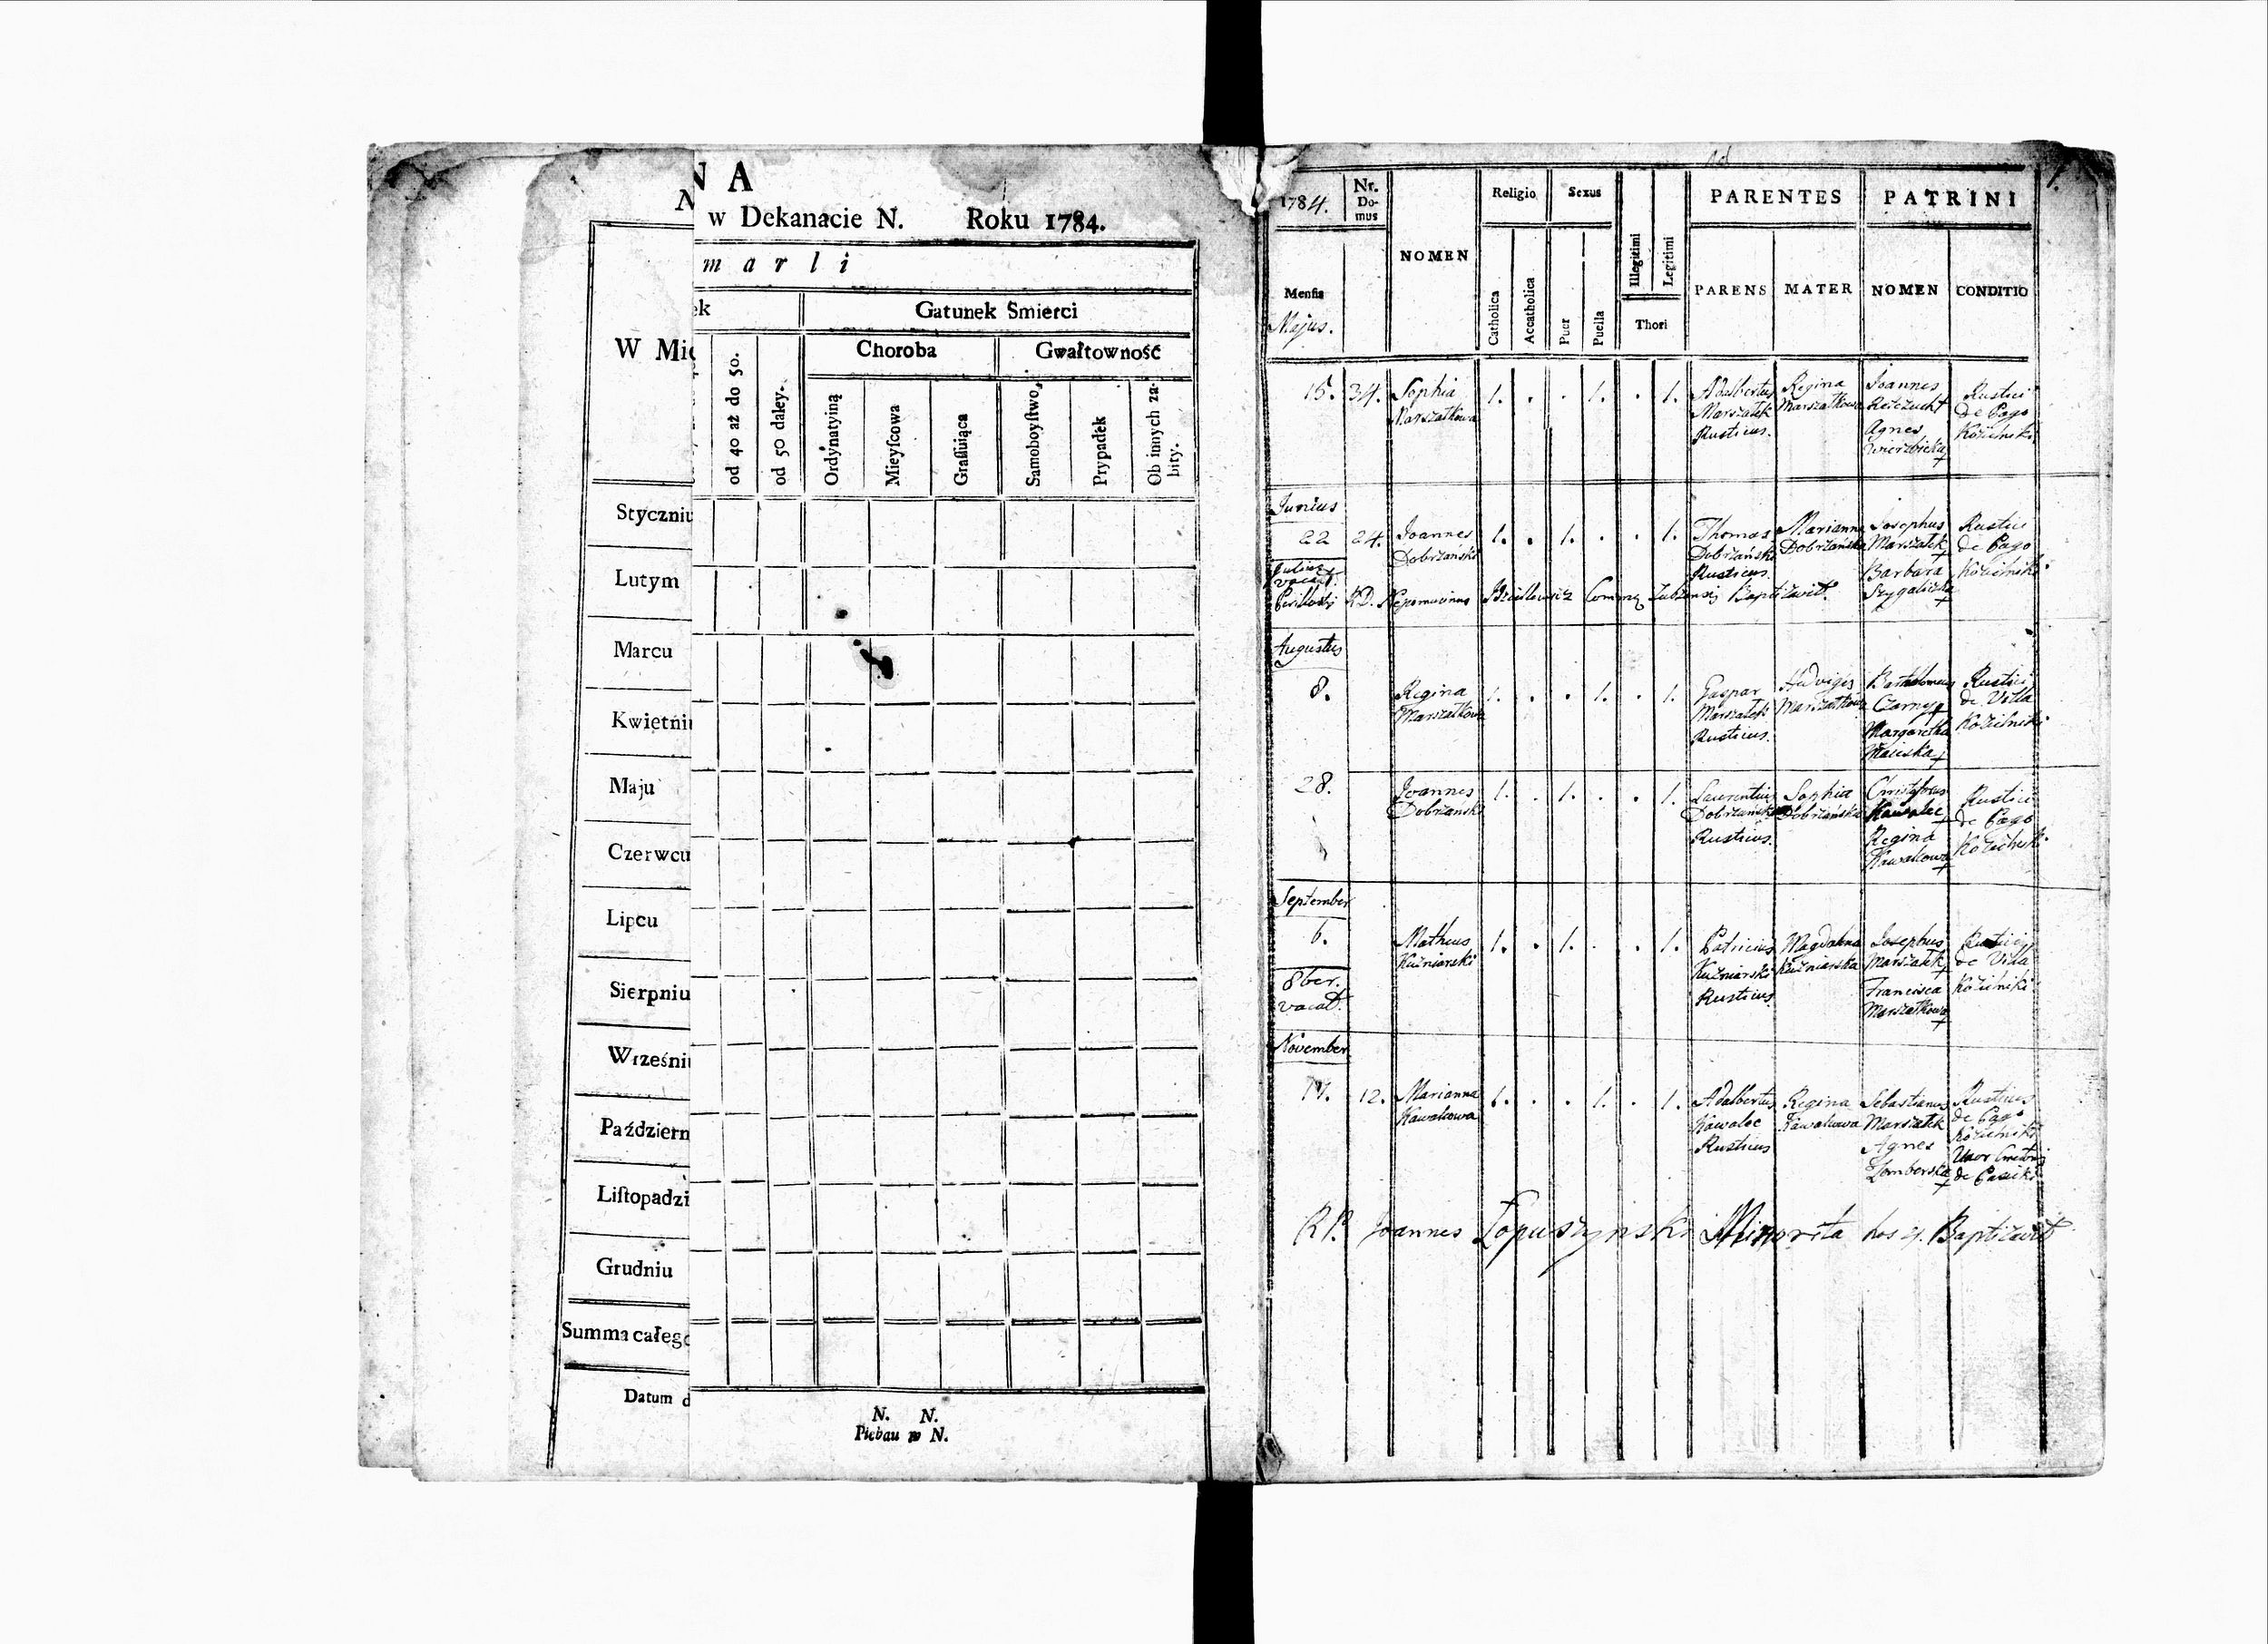 N A
w Dekanacie N. Roku 1784.
m a r l i
ek
Gatunek Smierci
W Mie
od 40 aż do 50.
od 50 daley.
Choroba
Gwałtowność
Ordynatyiną
Mieyſcowa
Graſſuiąca
Samoboyſtwo,
Prypadek
Ob innych za-
bity.
Styczniu
Lutym
Marcu
Kwietni
Maju
Czerwcu
Lipcu
Sierpniu
Wrześni
Październ
Liſtopadzi
Grudniu
Summa całego
Datum d
N. N.
Plebau w N.
1784.
Nr.
Do-
mus
NOMEN
Religio
Sexus
Illegitimi
Legitimi
PARENTES
PATRINI
Menſis
Majus.
Catholica
Accatholica
Puer
Puella
Thori
PARENS
MATER
NOMEN
CONDITIO
15. 34. Sophia
Marszałkowa
1. . . 1. . 1.
Adalbertus
Marszałek
Rusticus.
Regina
Marszałkowa
Joannes
Agnes
Rustici
de Pago
Kozielniki
Junius
22 24. Joannes
Dobrzański
1. . 1. . . 1.
Thomas
Dobrzański
Rusticus.
Marianna
Dobrzańska
Josephus
Marszałek
Barbara
Rustici
de Pago
Kozielniki
Julius
vacat.
RD. Nepomucenus Baptizavit.
Augustus
8. Regina
Marszałkowa
1. . . 1. . 1.
Gaspar
Marszałek
Rusticus.
Hedvigis
Marszałkowa
Bartholomeus
Czarny
Margaretha
Rustici
de Villa
Kozielniki
28. Joannes
Dobrzański
1. . 1. . . 1.
Laurentius
Dobrzański
Rusticus.
Sophia
Dobrzańska
Christophorus
Kawalec
Regina
Kawalcowa
Rustici
de Pago
Kozielniki
September
6. Matheus
Kuźniarski
1. . 1. . . 1.
Patricius
Kuźniarski
Rusticus
Magdalena
Kuźniarska
Josephus
Marszałek
Francisca
Marszałkowa
Rustici
de Villa
Kozielniki
8ber.
vacat.
November
12. Marianna
Kawalcowa
1. . . 1. . 1.
Adalbertus
Kawalec
Rusticus
Regina
Kawalcowa
Sebastianus
Marszałek
Agnes
Rusticus
de Pago
Kozielniki
Uxor
RP. Joannes Łopuszyński Minorita hos Baptizavit